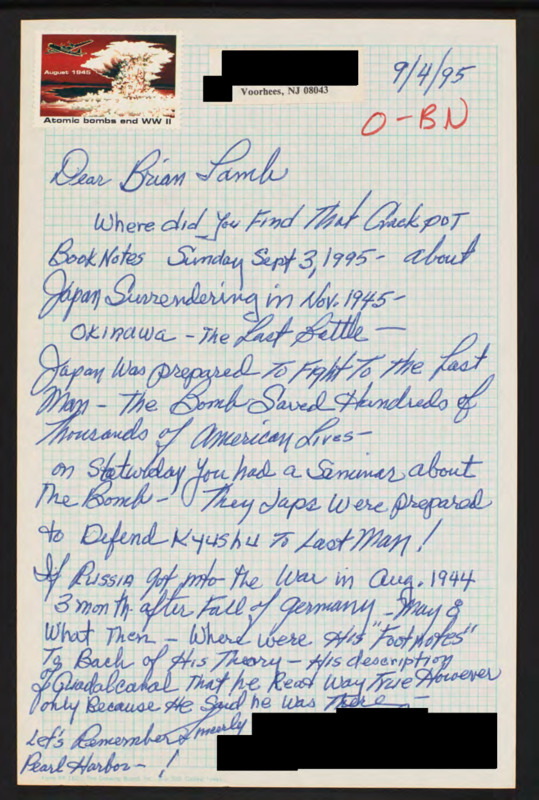 August 1945
Atomic bombs end WW II
Voorhees, NJ 08043
9/4/95
O-BN
Dear Brian Lamb
Where did you Find That Crackpot
BookNotes Sunday Sept 3, 1995 - about
Japan Surrendering in Nov. 1945 -
OKINAWA - The Last Battle —
Japan Was prepared To Fight To the Last
Man - The Bomb Saved Hundreds of
Thousands of American Lives -
on Statuday You had a Seminar about
The Bomb - They Japs Were prepared
to Defend Kyushu To Last Man!
If Russia got into the War in Aug. 1944
3 month after Fall of Germany - May 8
What Then - Where were His "Footnotes"
To Back of His Theory - His description
of Guadalcanal That he Read Way True However
only Because He Said he was There -
Let's Remember Sincerely
Pearl Harbor - !